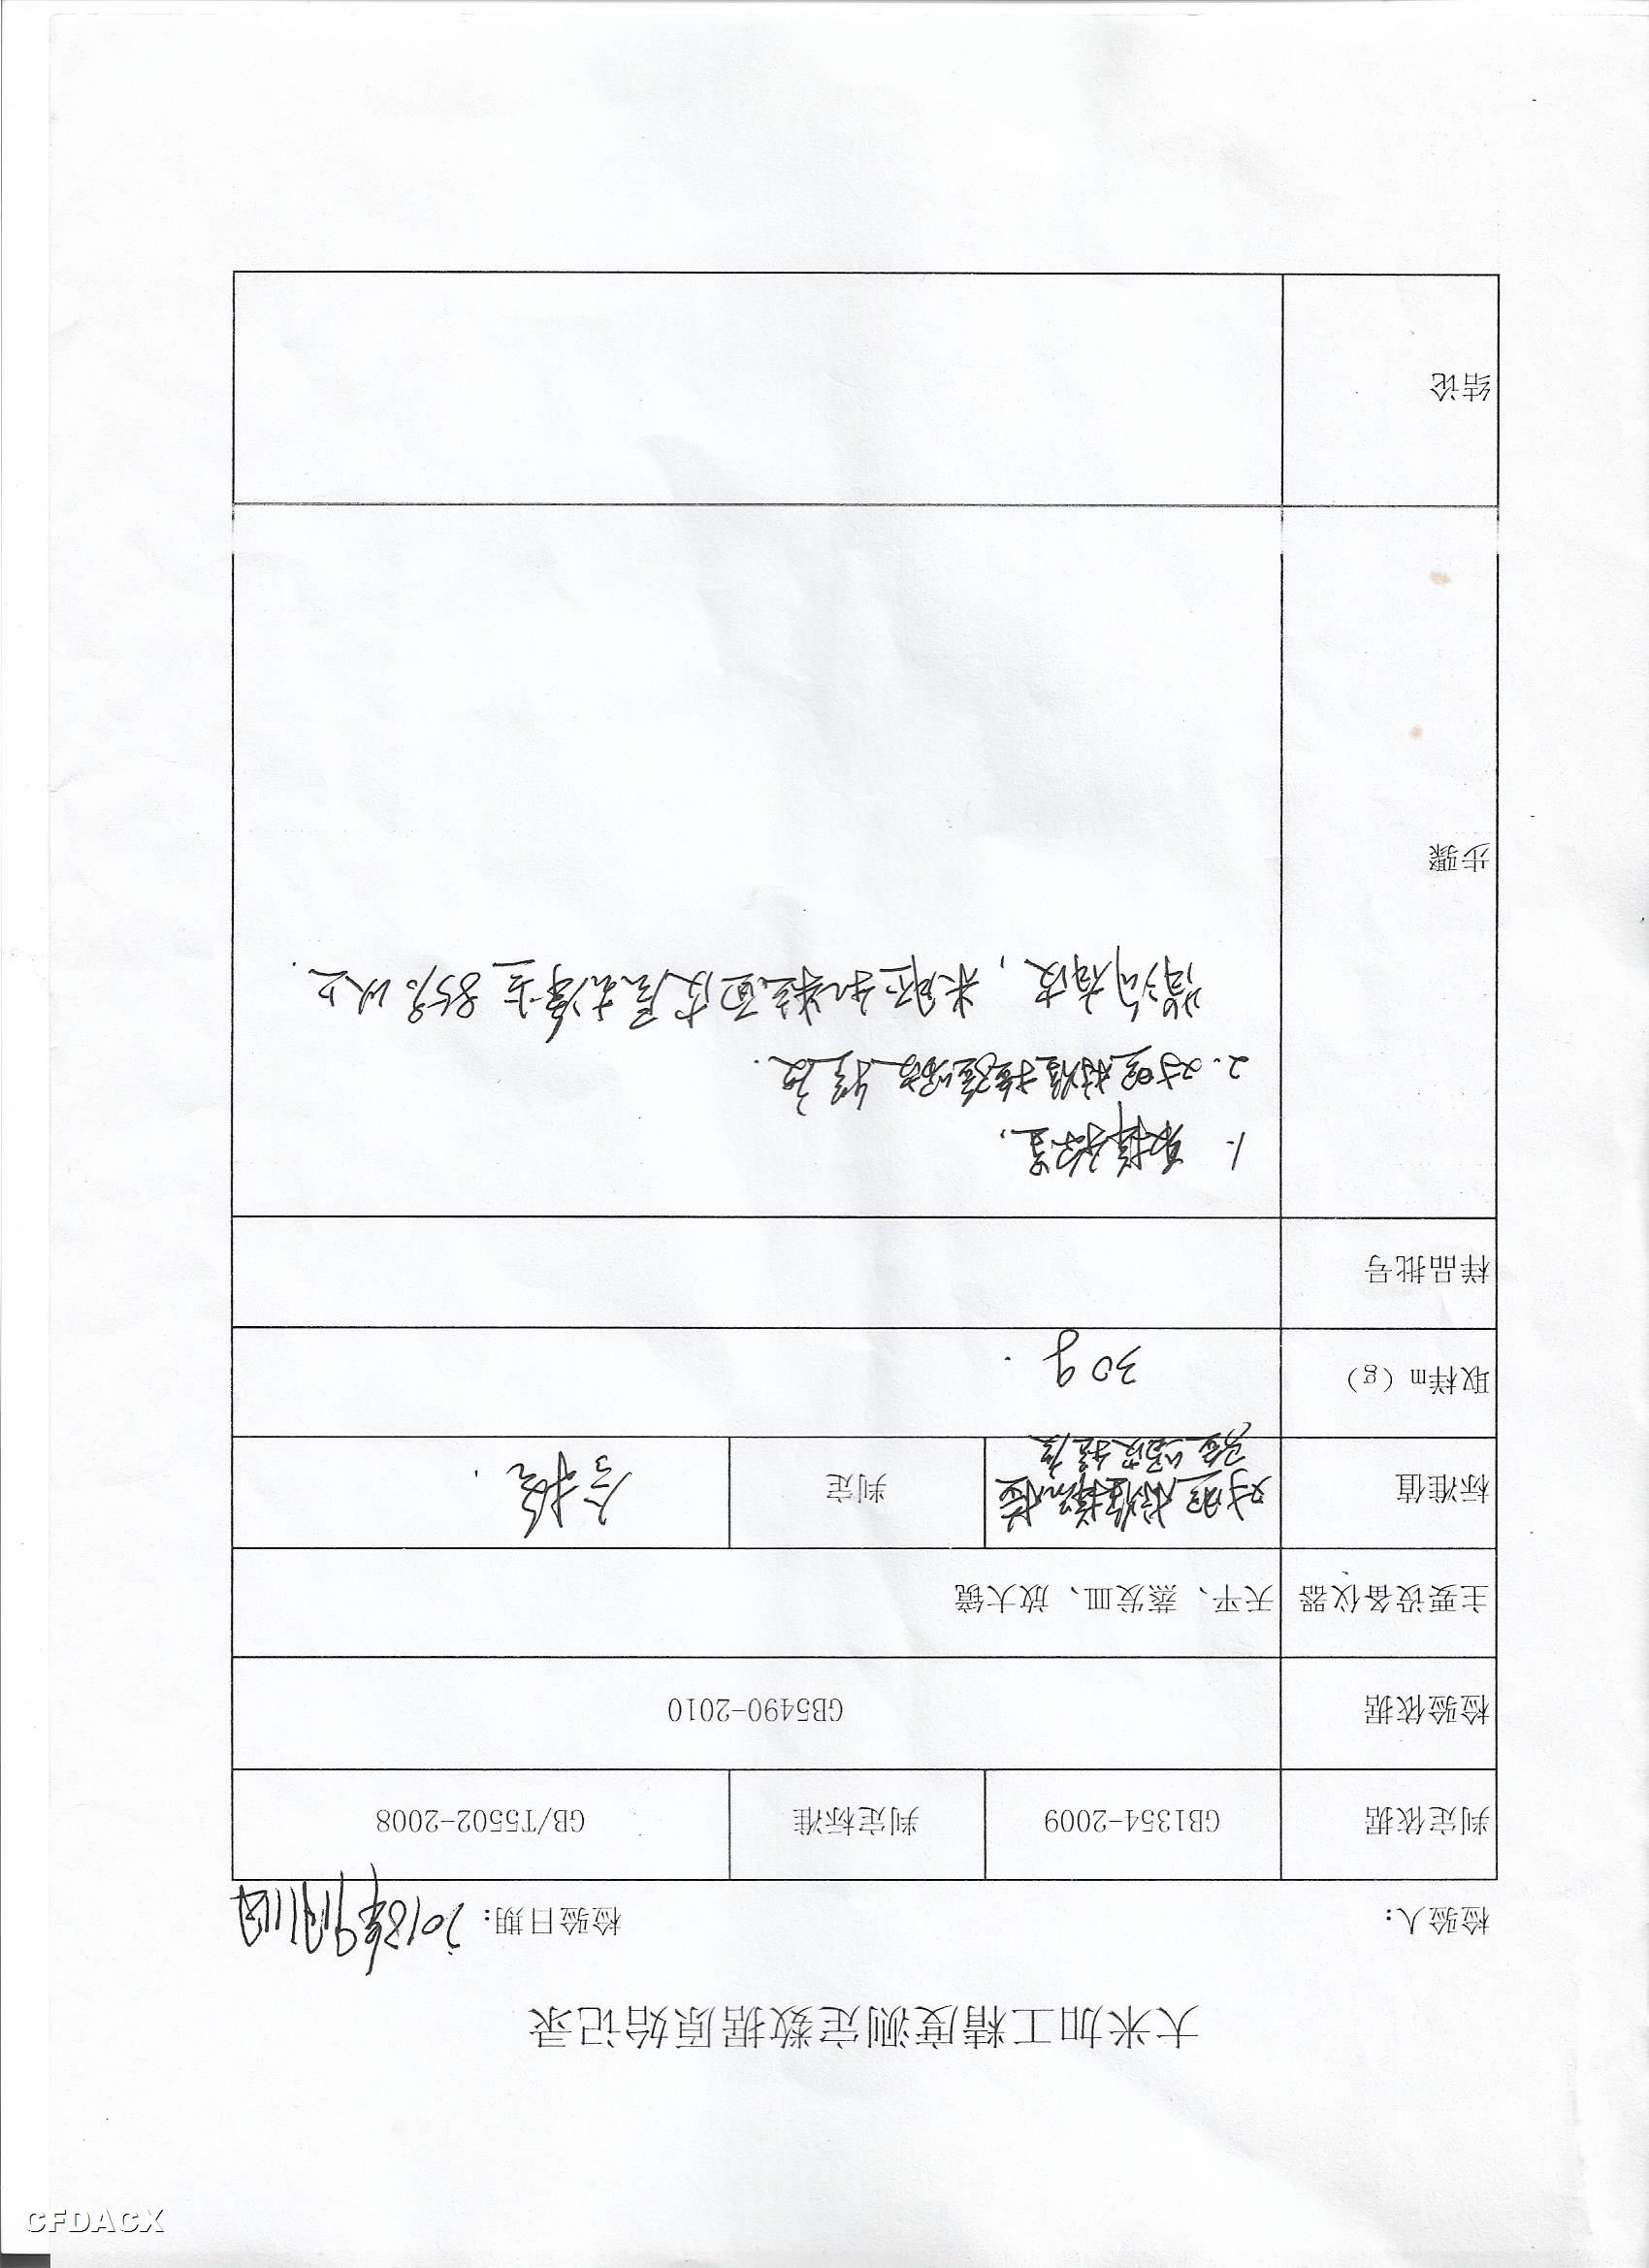 大米加工精度测定数据原始记录
检验人： 检验日期：2018年9月11日
判定依据 GB1354-2009 判定标准 GB/T5502-2008
检验依据 GB5490-2010
主要设备仪器 天平、蒸发皿、放大镜
标准值 对照标准样品检 判定 合格.
验留皮程度
取样m（g） 30g.
样品批号
步骤
1. 取样称量.
2. 对照标准样检验留皮程度.
背沟有皮，米胚和粒面皮层去净占85%以上.
结论
CFDACX